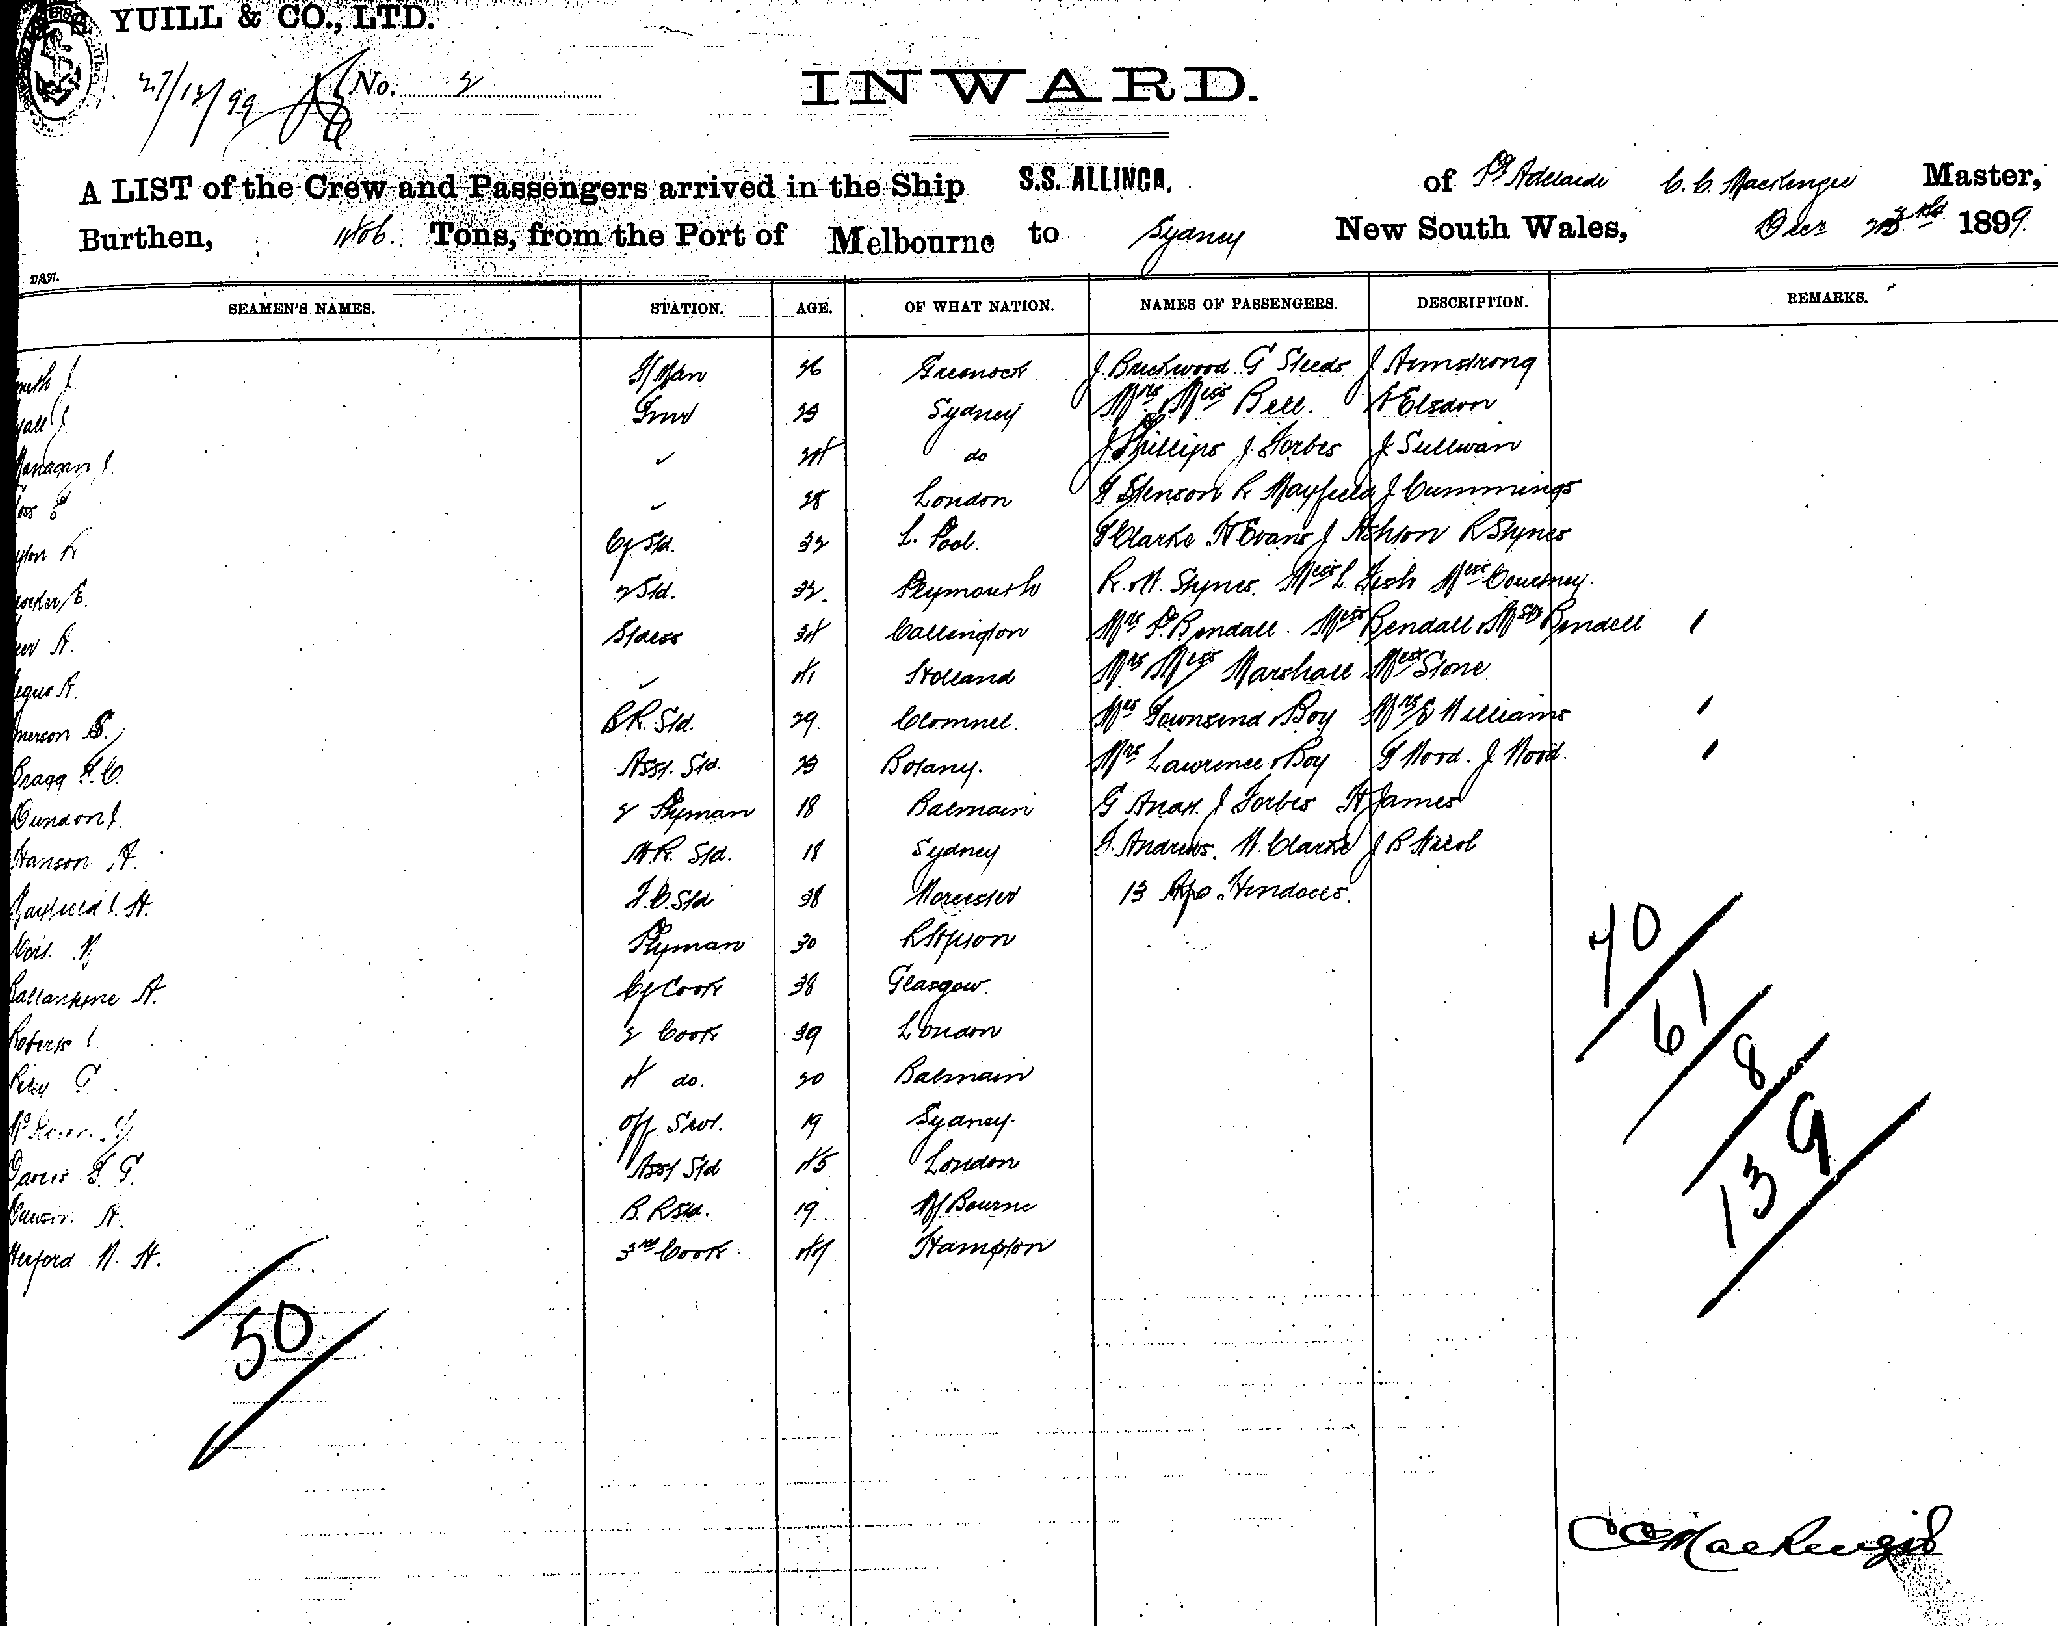 YUILL & CO., LTD.
27/12/99 No. 2
INWARD.
A LIST of the Crew and Passengers arrived in the Ship S.S. ALLINGA. of Pt Adelaide C. C. Mackenzie Master,
Burthen, Tons, from the Port of Melbourne to Sydney New South Wales, Decr 23rd 1899.
SEAMEN'S NAMES. STATION. AGE. OF WHAT NATION. NAMES OF PASSENGERS. DESCRIPTION. REMARKS.
mith J. 36 Greenock J. Brickwood G Steeds J Armstrong
yall J 23 Sydney Mrs Miss Bell. Elsdon
24 do J Phillips J. Forbes J. Sullivan
28 London Stenson R Mayfield J Cummings
Cf Std. 32 L. Pool. Clarke H Evans J Ashton R Stynes
E. 2 Std. 32. Plymouth R. M. Stynes. Miss L. Fish Miss Courtney.
A. Stdess 34 Callington Mrs P. Rendall. Miss Rendall Mstr Rendell
A. 41 Holland Mrs Miss Marshall Miss Stone
merson B.R. Std. 29. Clonmel. Mrs Townsend & Boy Mrs E Williams
Bragg F. C. Asst. Std. 23 Botany. Mrs Lawrence & Boy G Wood. J. Wood.
Dundon J. 2 Ptyman 18 Balmain G J Forbes H James
Hanson A. Std. 18 Sydney Andrews. W. Clarke J B
Mayfield C. H. F.C. Std 38 Worcester 13 Afg. Hindoes.
Ptyman 30
Ballantyne A. Cf Cook 38 Glasgow.
Roberts C. 2 Cook 39 London
G 4 do. 20 Balmain
Off Serv. 19 Sydney.
Davis F. G. Asst Std 45 London
A. B. R Std. 19 M Bourne
Herford W. H. 3rd Cook. 44 Hampton
70
61
8
139
50
C C Mackenzie